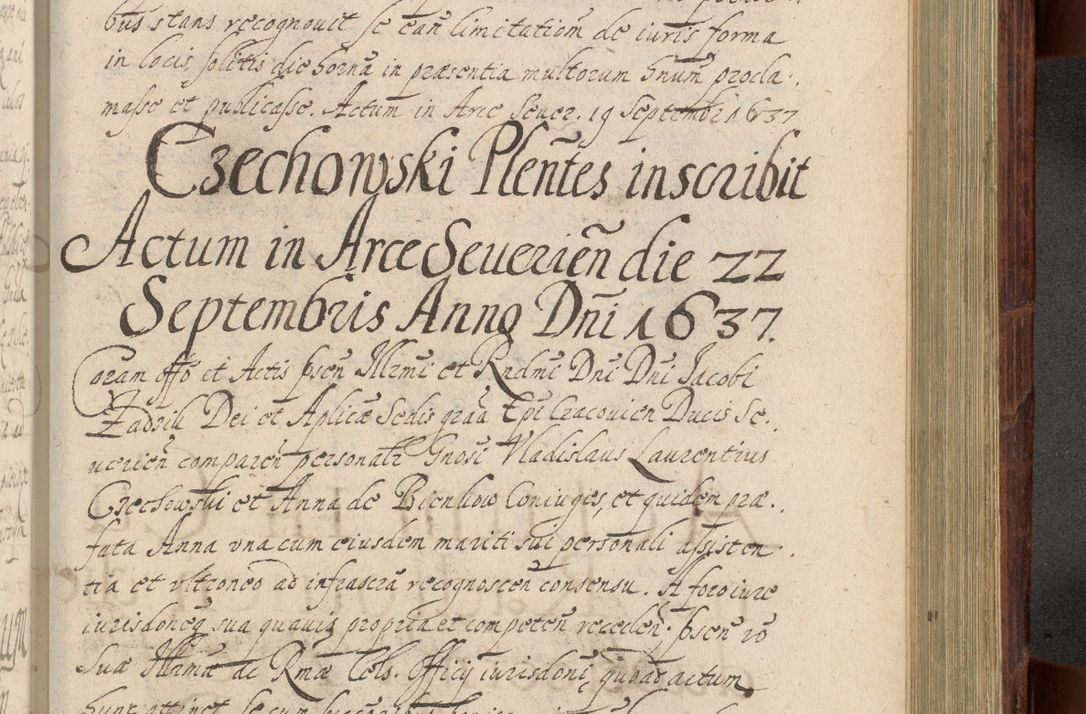 bus stans recognouit se eañ limitatiom de iuris forma
in locis solitis die hornã in præsentia multorum hnum procla.
masse et publicasse. Actum in Arce Seuer. 19 Septembr 1637
Czechowski Pleñtes inscribit
Actum in Arce Seuerieñ die 22
Septembris Anno Dñi 1637.
Coram offo et Actis pseñ Illrmi et Rndmi Dñi Dñi Jacobi
Zadzik Dei et Aplicæ Sedis graã Epi Cracouien Ducis Se.
uerieñ compareñ personalr Gnosi Vladislaus Laurentius
Czechowski et Anna de Bienkow Coniuges, et quidem præ.
fata Anna vna cum eiusdem mariti sui personali assisten.
tia et vltroneo ad infrascrã recognosceñ consensu. A foro iure
iurisdoneq sua quauis propria et competeñ recedeñ. pseñ ro
Suæ Illrmæ ac Rmæ Cels. Officij iurisdoni, quoad actum
hunc attinet se cum